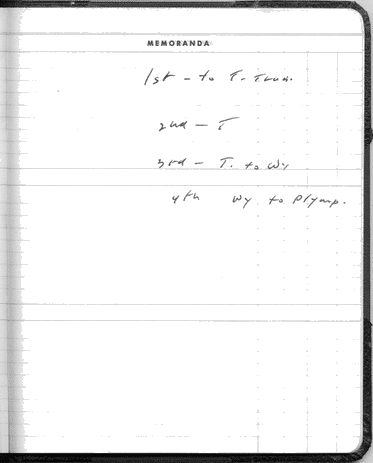 MEMORANDA
1st - to T.
2nd - T
3rd - T. to Wy
4th Wy to Plymp.